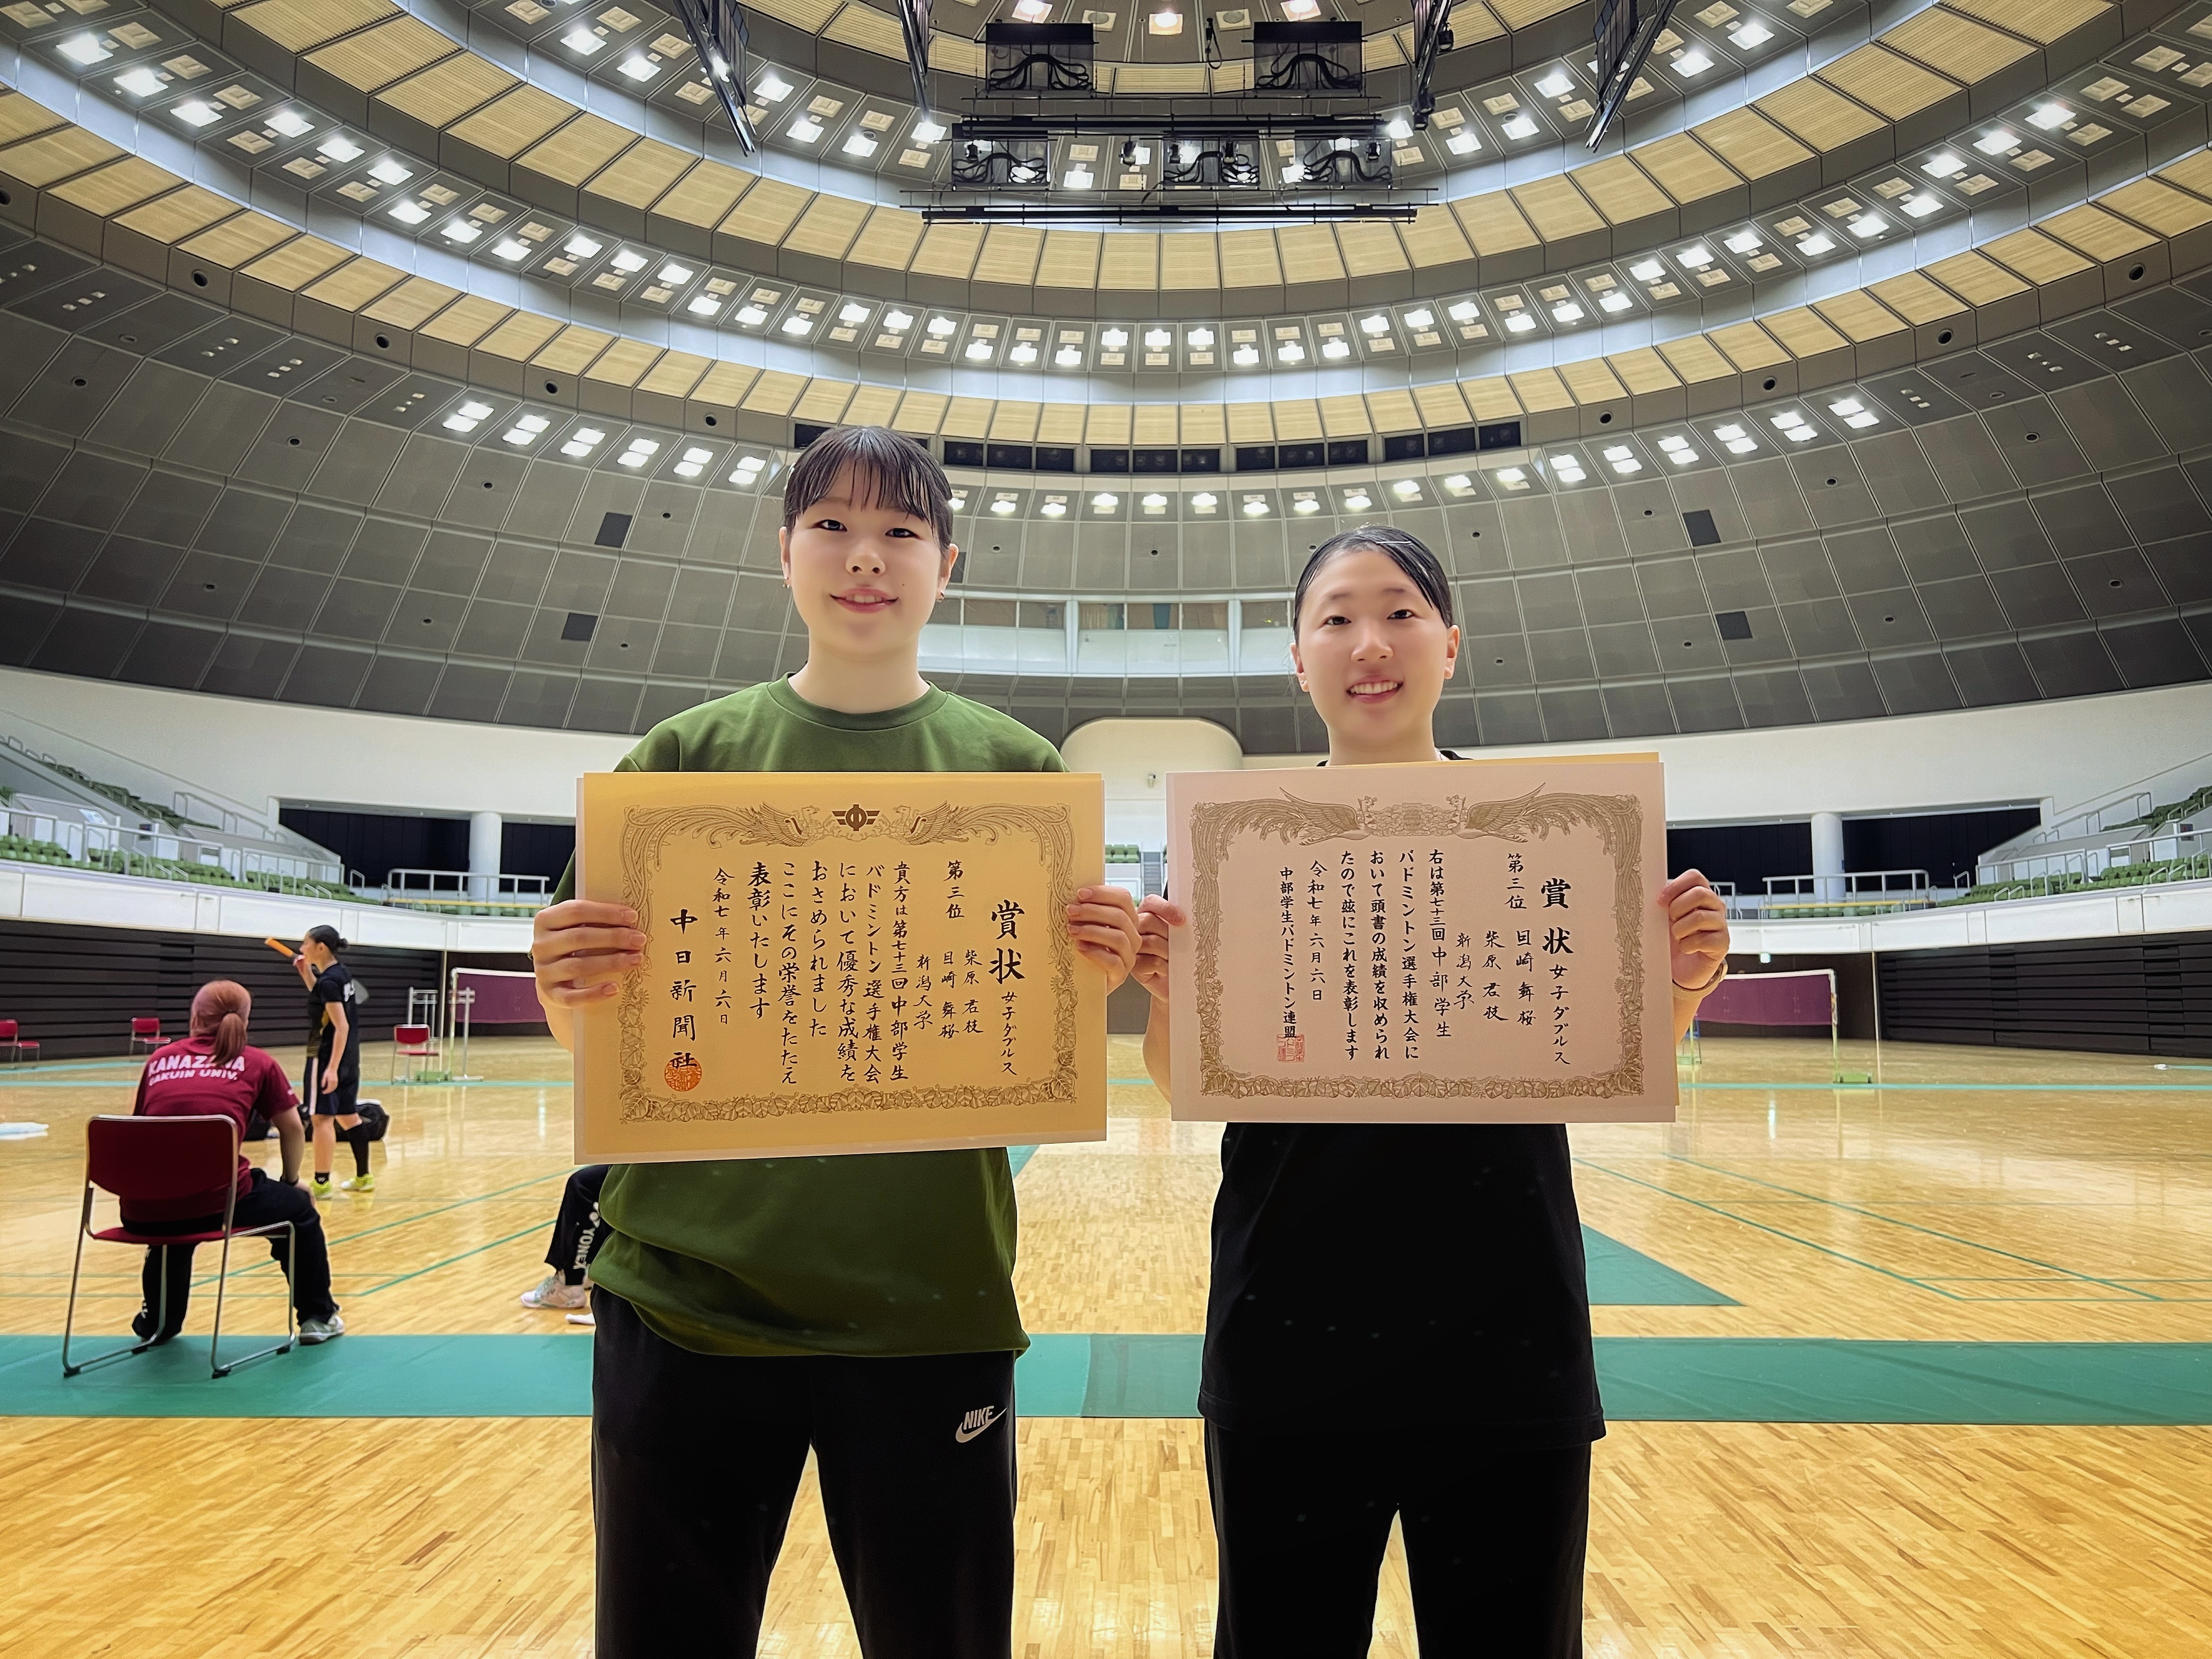 賞状 女子ダブルス
第三位
柴原 君枝
目崎 舞桜
新潟大学
貴方は第七十三回中部学生
バドミントン選手権大会
において優秀な成績を
おさめられました
ここにその栄誉をたたえ
表彰いたします
令和七年六月六日
中日新聞社
賞状 女子ダブルス
第三位
目崎 舞桜
柴原 君枝
新潟大学
右は第七十三回中部学生
バドミントン選手権大会に
おいて頭書の成績を収められ
たので茲にこれを表彰します
令和七年六月六日
中部学生バドミントン連盟
KANAZAWA
GAKUIN UNIV.
YONEX
NIKE